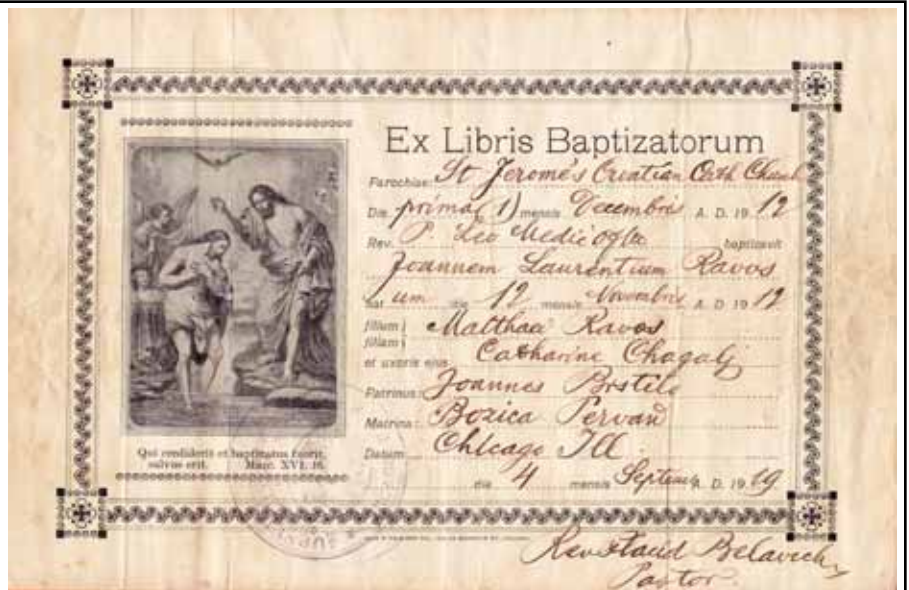 Ex Libris Baptizatorum
Parochiae: St Jerome's Croatian Cath Church
Die prima (1) mensis Decembris A. D. 19 12
Rev. P. Leo Medic baptizavit
Joannem Laurentium Ravos
nat um die 12 mensis Novembris A. D. 19 12
filium Matthaei Ravos
filiam
et uxoris ejus Catharine Chagalj
Patrinus: Joannes Brstilo
Matrina: Bozica Pervan
Datum Chicago Ill
die 4 mensis Septem A. D. 19 19
Qui crediderit et baptizatus fuerit,
salvus erit. Marc. XVI, 16.
Rev Placid Belavich
Pastor